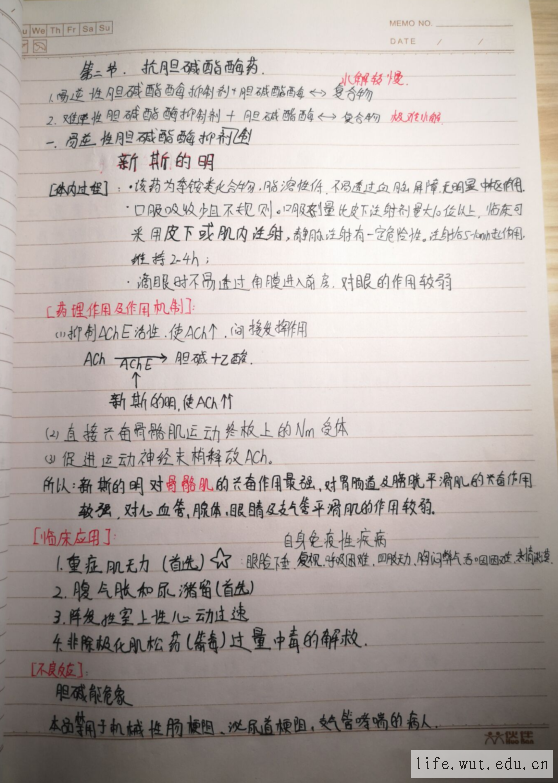 We Th Fr Sa Su
MEMO NO.
DATE / /
第二节. 抗胆碱酯酶药.
水解较慢
1.易逆性胆碱酯酶抑制剂+胆碱酯酶↔复合物
2.难逆性胆碱酯酶抑制剂 + 胆碱酯酶↔复合物 极难水解
一.易逆性胆碱酯酶抑制剂
新斯的明
[体内过程]:·该药为季铵类化合物,脂溶性低,不易透过血脑屏障,无明显中枢作用.
·口服吸收少且不规则。口服剂量比皮下注射剂量大10倍以上,临床可
采用皮下或肌内注射,静脉注射有一定危险性。注射后5-10min起作用,
维持2-4h;
·滴眼时不易透过角膜进入前房.对眼的作用较弱
[药理作用及作用机制]:
(1)抑制AChE活性,使ACh↑,间接发挥作用
ACh →AChE 胆碱+乙酸.
↑
新斯的明,使ACh↑↑
(2)直接兴奋骨骼肌运动终板上的Nm受体
(3)促进运动神经末梢释放ACh.
所以:新斯的明对骨骼肌的兴奋作用最强,对胃肠道及膀胱平滑肌的兴奋作用
较强,对心血管,腺体,眼睛及支气管平滑肌的作用较弱.
[临床应用]: 自身免疫性疾病
1.重症肌无力(首先)☆:眼脸下垂.复视.呼吸困难,四肢无力,胸闷憋气
2.腹气胀和尿潴留(首先)
3.阵发性室上性心动过速
4.非除极化肌松药(箭毒)过量中毒的解救.
[不良反应]:
胆碱能危象
本品禁用于机械性肠梗阻、泌尿道梗阻,支气管哮喘的病人.
life.wut.edu.cn